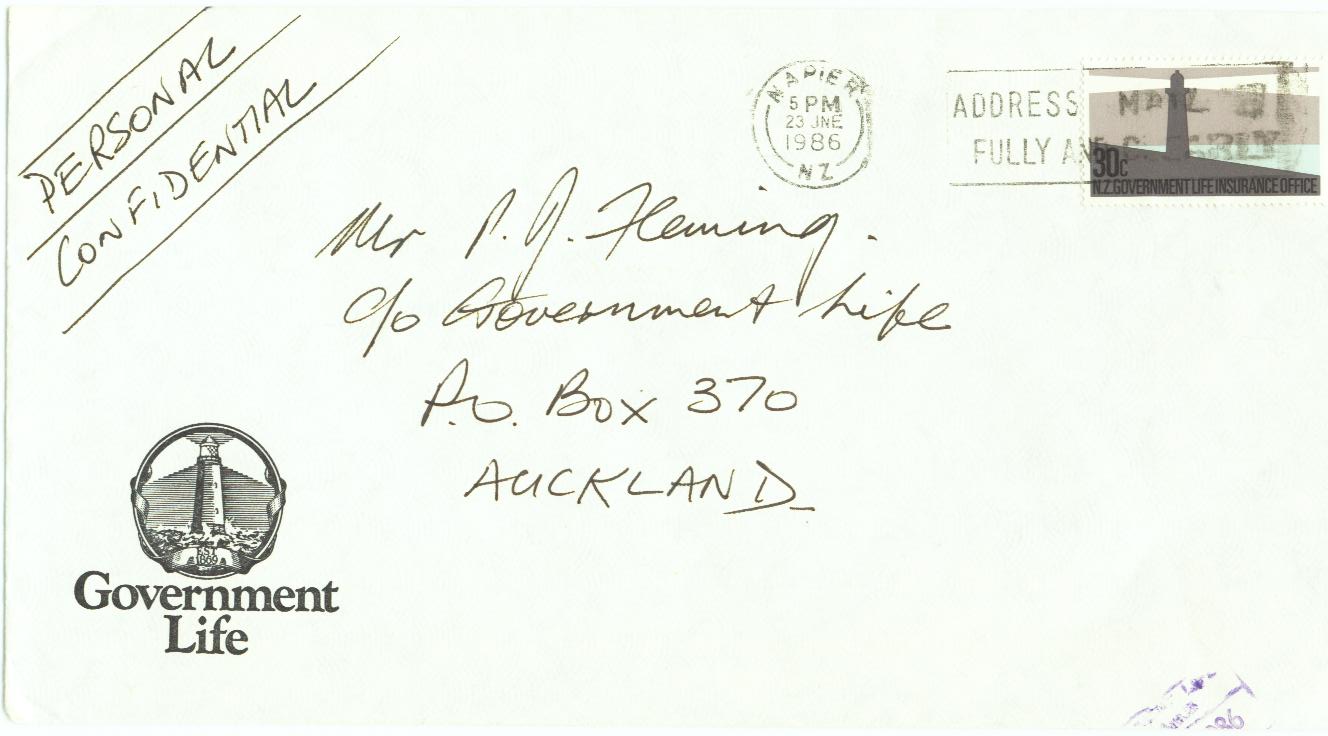 PERSONAL
CONFIDENTIAL
NAPIER
5 PM
23 JNE
1986
NZ
ADDRESS MAIL
FULLY AND CLEARLY
30c
N.Z. GOVERNMENT LIFE INSURANCE OFFICE
Mr P. J. Fleming.
c/o Government Life
P.O. Box 370
AUCKLAND
EST
1869
Government
Life